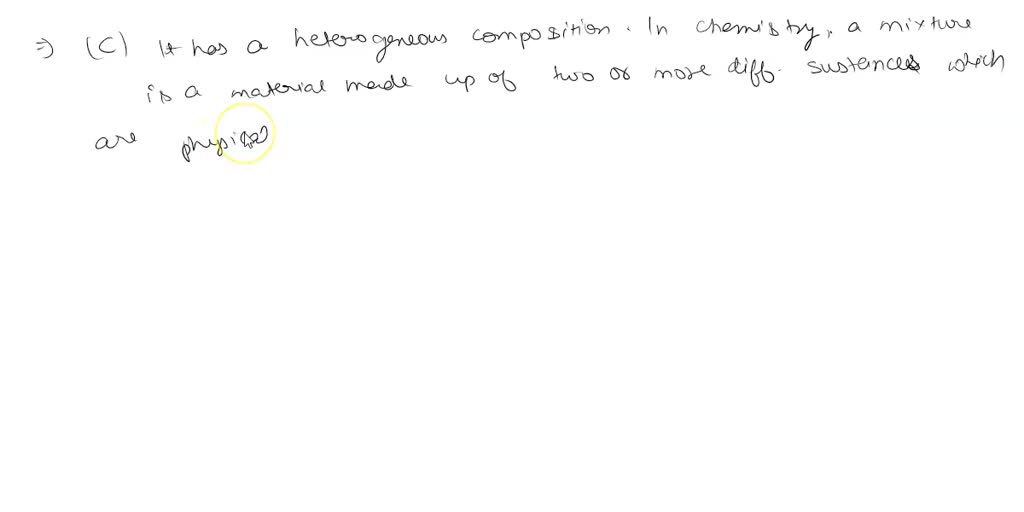 ⇒ (C) It has a heterogeneous composition. In chemistry, a mixture
is a material made up of two or more diff. sustances which
are physical